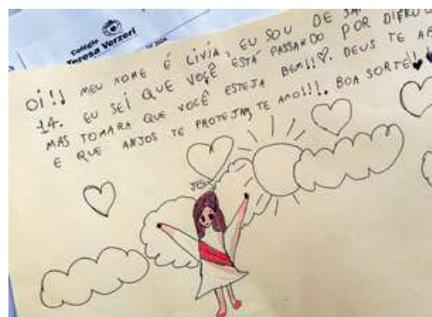 Colégio
Teresa Verzeri
OÍ!! MEU NOME É LIVIA, EU SOU DE
14. EU SEI QUE VOCÊ ESTÁ PASSANDO POR
MAS TOMARA QUE VOCÊ ESTEJA BEM!!♡. DEUS TE
E QUE ANJOS TE PROTEJAM, TE AMO!!!. BOA SORTE!!
JESUS